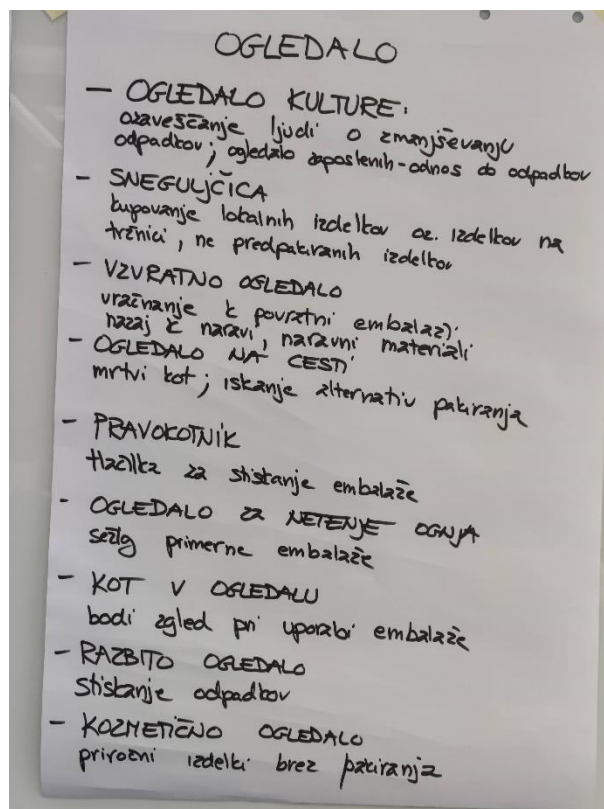 OGLEDALO
- OGLEDALO KULTURE:
ozaveščanje ljudi o zmanjševanju
odpadkov; ogledalo zaposlenih-odnos do odpadkov
- SNEGULJČICA
kupovanje lokalnih izdelkov oz. izdelkov na
tržnici, ne predpakiranih izdelkov
- VZVRATNO OGLEDALO
vračnanje k povratni embalaži;
nazaj k naravi, naravni materiali
- OGLEDALO NA CESTI
mrtvi kot; iskanje alternativ pakiranja
- PRAVOKOTNIK
tlačilka za stistanje embalaže
- OGLEDALO ZA NETENJE OGNJA
sežig primerne embalaže
- KOT V OGLEDALU
bodi zgled pri uporabi embalaže
- RAZBITO OGLEDALO
stiskanje odpadkov
- KOZMETIČNO OGLEDALO
priročni izdelki brez pakiranja